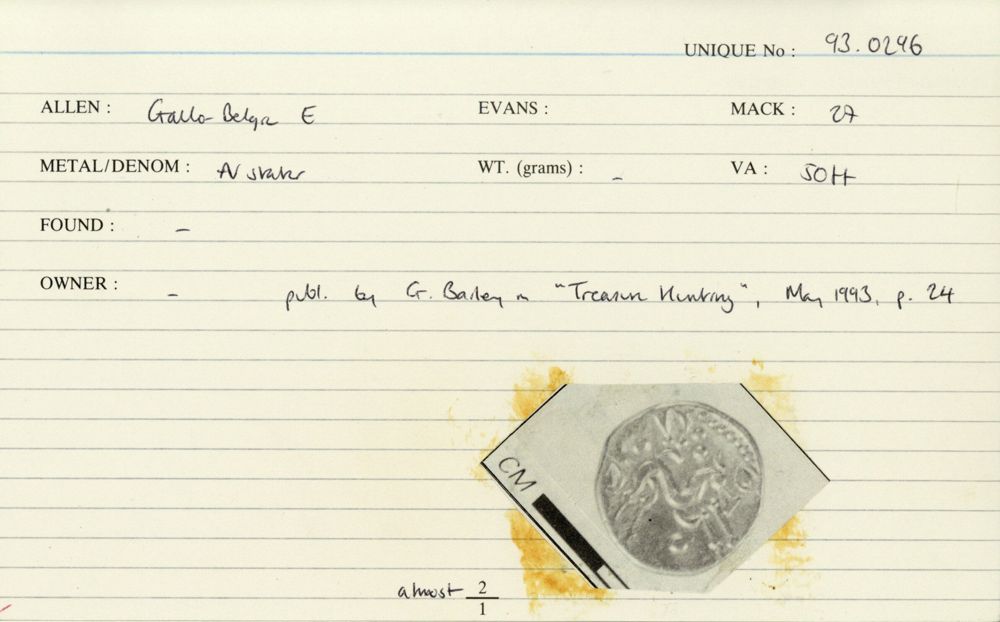 UNIQUE No : 93.0296
ALLEN : Gallo-Belgic E EVANS : MACK : 27
METAL/DENOM : AV stater WT. (grams) : - VA : 50++
FOUND : -
OWNER : - publ. by G. Bailey in "Treasure Hunting", May 1993, p. 24
CM
almost 2
1